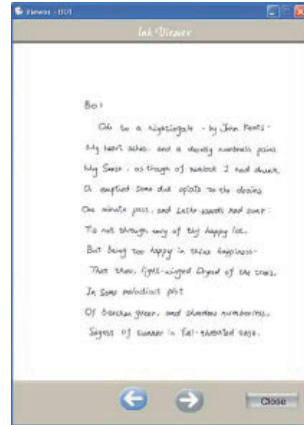 Viewer - 001
Ink Viewer
Ode to a Nightingale - by John Keats -
My heart aches, and a drowsy numbness pains
My Sense, as though of hemlock I had drunk
Or emptied some dull opiate to the drains
One minute past, and Lethe-wards had sunk:
Tis not through envy of thy happy lot,
But being too happy in thine happiness-
That thou, light-winged Dryad of the trees,
In Some melodious plot
Of beechen green, and shadows numberless,
Singest of summer in full-throated ease.
Close